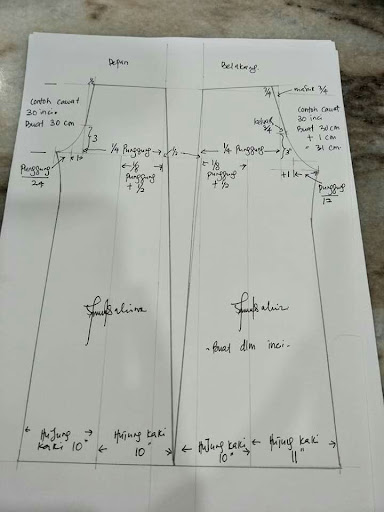 Depan
Belakang
Contoh cawat
30 inci
Buat 30 cm
3
1/4 punggung
1/2
1/8
punggung
+ 1/2
Punggung
24
Hujung
kaki 10"
Hujung kaki
10"
3/4
masuk 3/4
3/4
Contoh cawat
30 inci
Buat 30 cm
+ 1 cm
= 31 cm
1/4 punggung
3"
1/8
punggung
+ 1/2
+1
Punggung
12
- Buat dlm inci -
Hujung kaki
10"
Hujung kaki
11"